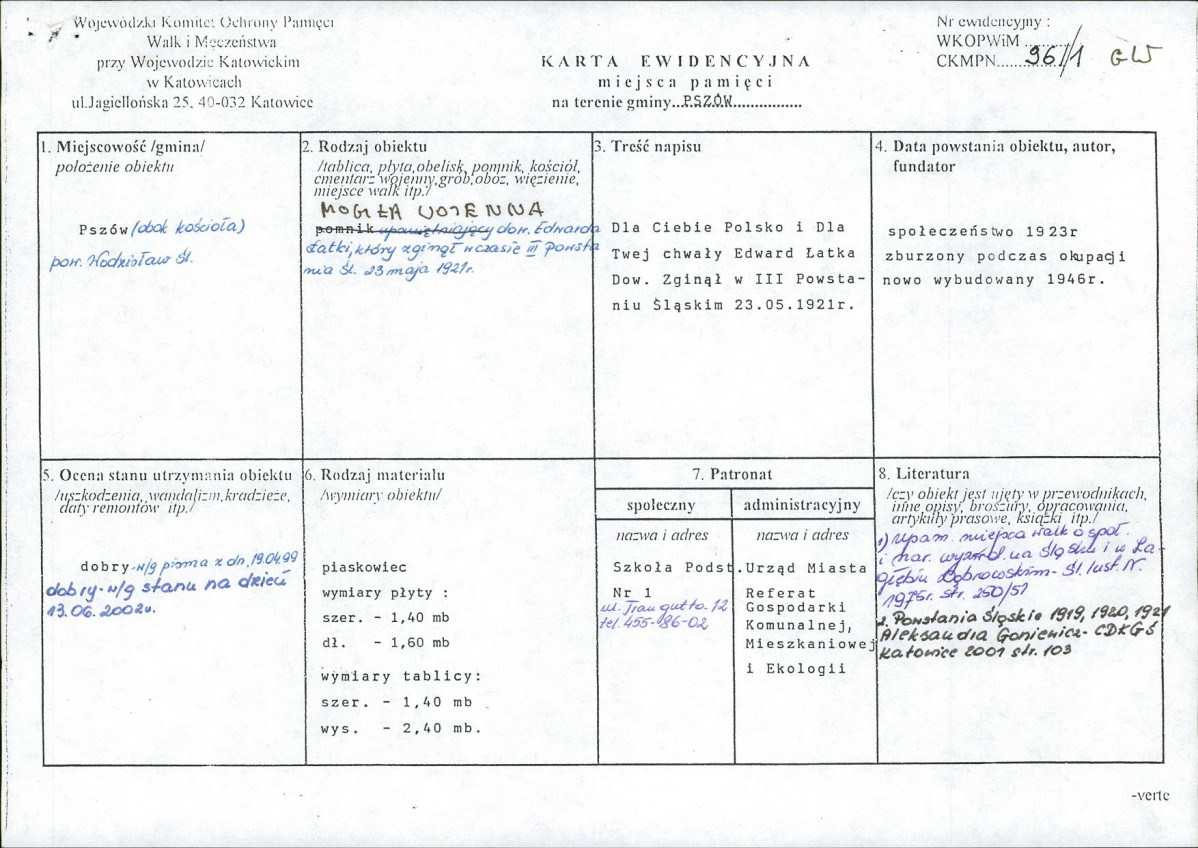 Wojewódzki Komitet Ochrony Pamięci
Walk i Męczeństwa
przy Wojewodzie Katowickim
w Katowicach
ul.Jagiellońska 25, 40-032 Katowice
KARTA EWIDENCYJNA
miejsca pamięci
na terenie gminy..PSZÓW................
Nr ewidencyjny :
WKOPWiM ..........
CKMPN.......96/1 GW
1. Miejscowość /gmina/
położenie obiektu
Pszów (obok kościoła)
pow. Wodzisław Śl.
2. Rodzaj obiektu
/tablica, płyta,obelisk, pomnik, kościół,
cmentarz wojenny,grób,obóz, więzienie,
miejsce walk itp./
MOGIŁA WOJENNA
pomnik upamiętniający dow. Edwarda
Łatki, który zginął w czasie III powsta
nia Śl. 23 maja 1921r.
3. Treść napisu
Dla Ciebie Polsko i Dla
Twej chwały Edward Łatka
Dow. Zginął w III Powsta-
niu Śląskim 23.05.1921r.
4. Data powstania obiektu, autor,
fundator
społeczeństwo 1923r
zburzony podczas okupacji
nowo wybudowany 1946r.
5. Ocena stanu utrzymania obiektu
/uszkodzenia, wandalizm,kradzieże,
daty remontów itp./
dobry-w/g pisma z dn. 19.04.99
dobry-w/g stanu na dzień
13.06.2002r.
6. Rodzaj materiału
/wymiary obiektu/
piaskowiec
wymiary płyty :
szer. - 1,40 mb
dł. - 1,60 mb
wymiary tablicy:
szer. - 1,40 mb
wys. - 2,40 mb.
7. Patronat
społeczny
nazwa i adres
Szkoła Podst.
Nr 1
ul. Traugutta 12
tel. 455-86-02
administracyjny
nazwa i adres
Urząd Miasta
Referat
Gospodarki
Komunalnej,
Mieszkaniowej
i Ekologii
8. Literatura
/czy obiekt jest ujęty w przewodnikach,
inne opisy, broszury, opracowania,
artykuły prasowe, książki itp./
1) Upam. miejsca walk o społ.
i nar. wyzwol. na Śląsku i w Za-
głębiu Dąbrowskim- Śl. Inst. N.
1975r. str. 250/51
2. Powstania Śląskie 1919, 1920, 1921
Aleksandra - CDKGŚ
Katowice 2001 str. 103
-verte